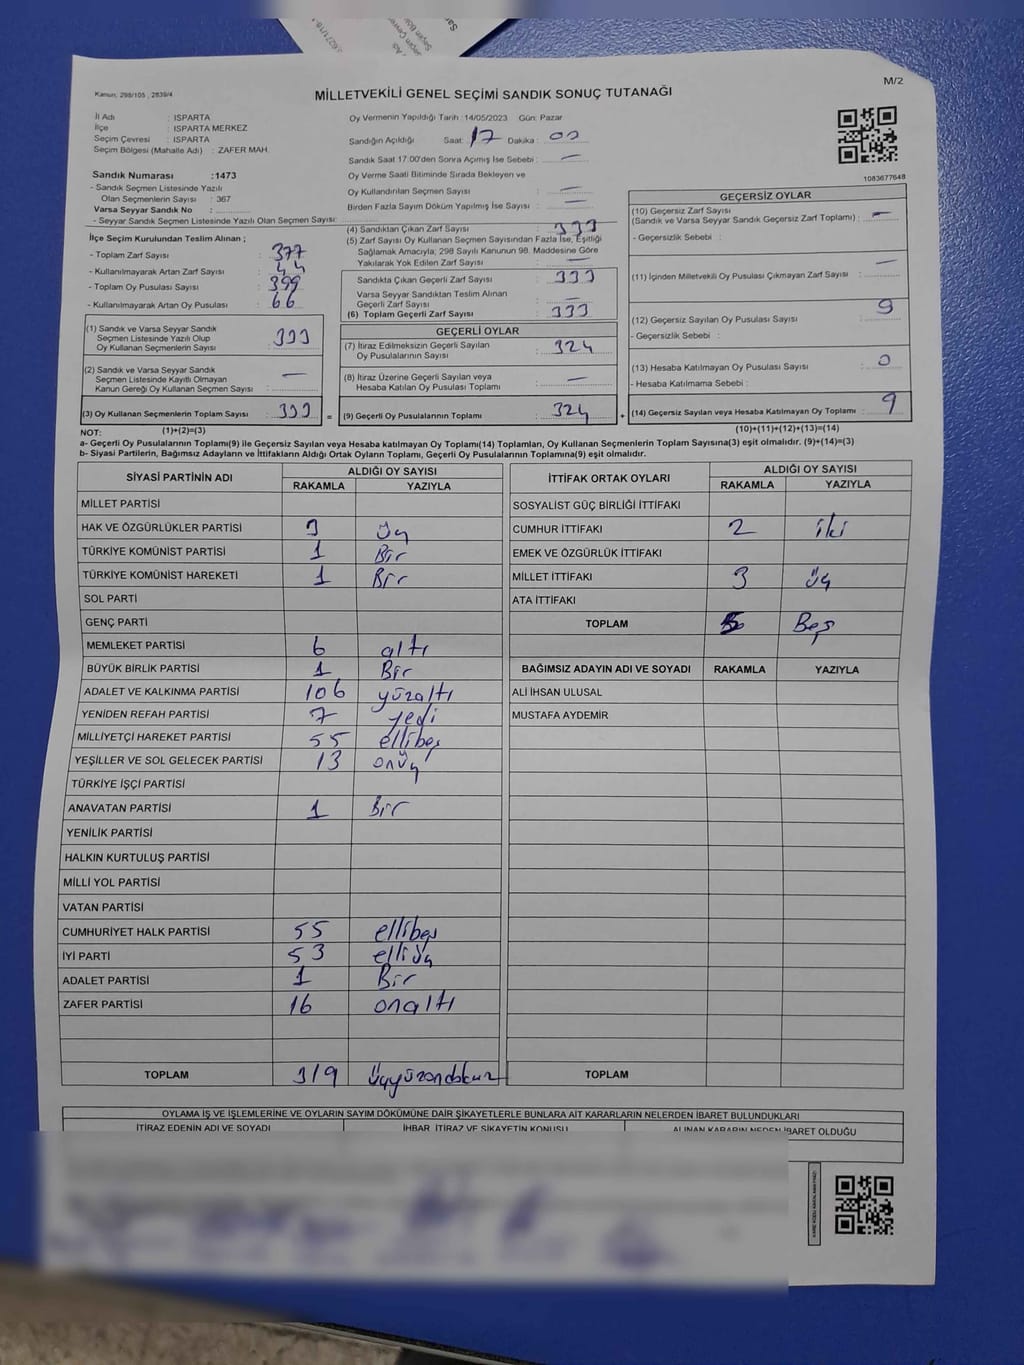 M/2
Kanun, 298/105 , 2839/4
MİLLETVEKİLİ GENEL SEÇİMİ SANDIK SONUÇ TUTANAĞI
İl Adı : ISPARTA
İlçe : ISPARTA MERKEZ
Seçim Çevresi : ISPARTA
Seçim Bölgesi (Mahalle Adı) : ZAFER MAH.
Sandık Numarası : 1473
- Sandık Seçmen Listesinde Yazılı
Olan Seçmenlerin Sayısı : 367
Varsa Seyyar Sandık No :
- Seyyar Sandık Seçmen Listesinde Yazılı Olan Seçmen Sayısı:
İlçe Seçim Kurulundan Teslim Alınan ;
- Toplam Zarf Sayısı : 377
- Kullanılmayarak Artan Zarf Sayısı : 44
- Toplam Oy Pusulası Sayısı : 399
- Kullanılmayarak Artan Oy Pusulası : 66
(1) Sandık ve Varsa Seyyar Sandık
Seçmen Listesinde Yazılı Olup
Oy Kullanan Seçmenlerin Sayısı : 333
(2) Sandık ve Varsa Seyyar Sandık
Seçmen Listesinde Kayıtlı Olmayan
Kanun Gereği Oy Kullanan Seçmen Sayısı : —
(3) Oy Kullanan Seçmenlerin Toplam Sayısı : 333
(1)+(2)=(3)
Oy Vermenin Yapıldığı Tarih : 14/05/2023 Gün: Pazar
Sandığın Açıldığı Saat: 17 Dakika : 00
Sandık Saat 17:00'den Sonra Açımış İse Sebebi : —
Oy Verme Saati Bitiminde Sırada Bekleyen ve
Oy Kullandırılan Seçmen Sayısı : —
Birden Fazla Sayım Döküm Yapılmış İse Sayısı : —
(4) Sandıktan Çıkan Zarf Sayısı : 333
(5) Zarf Sayısı Oy Kullanan Seçmen Sayısından Fazla İse, Eşitliği
Sağlamak Amacıyla, 298 Sayılı Kanunun 98. Maddesine Göre
Yakılarak Yok Edilen Zarf Sayısı : —
Sandıkta Çıkan Geçerli Zarf Sayısı : 333
Varsa Seyyar Sandıktan Teslim Alınan
Geçerli Zarf Sayısı : —
(6) Toplam Geçerli Zarf Sayısı : 333
GEÇERLİ OYLAR
(7) İtiraz Edilmeksizin Geçerli Sayılan
Oy Pusulalarının Sayısı : 324
(8) İtiraz Üzerine Geçerli Sayılan veya
Hesaba Katılan Oy Pusulası Toplamı : —
= (9) Geçerli Oy Pusulalarının Toplamı : 324 +
1083677648
GEÇERSİZ OYLAR
(10) Geçersiz Zarf Sayısı
(Sandık ve Varsa Seyyar Sandık Geçersiz Zarf Toplamı) : —
- Geçersizlik Sebebi :
(11) İçinden Milletvekili Oy Pusulası Çıkmayan Zarf Sayısı : —
(12) Geçersiz Sayılan Oy Pusulası Sayısı : 9
- Geçersizlik Sebebi :
(13) Hesaba Katılmayan Oy Pusulası Sayısı : 0
- Hesaba Katılmama Sebebi :
(14) Geçersiz Sayılan veya Hesaba Katılmayan Oy Toplamı : 9
(10)+(11)+(12)+(13)=(14)
NOT:
a- Geçerli Oy Pusulalarının Toplamı(9) ile Geçersiz Sayılan veya Hesaba katılmayan Oy Toplamı(14) Toplamları, Oy Kullanan Seçmenlerin Toplam Sayısına(3) eşit olmalıdır. (9)+(14)=(3)
b- Siyasi Partilerin, Bağımsız Adayların ve İttifakların Aldığı Ortak Oyların Toplamı, Geçerli Oy Pusulalarının Toplamına(9) eşit olmalıdır.
SİYASİ PARTİNİN ADI ALDIĞI OY SAYISI
RAKAMLA YAZIYLA
MİLLET PARTİSİ
HAK VE ÖZGÜRLÜKLER PARTİSİ 3 üç
TÜRKİYE KOMÜNİST PARTİSİ 1 Bir
TÜRKİYE KOMÜNİST HAREKETİ 1 Bir
SOL PARTİ
GENÇ PARTİ
MEMLEKET PARTİSİ 6 altı
BÜYÜK BİRLİK PARTİSİ 1 Bir
ADALET VE KALKINMA PARTİSİ 106 yüzaltı
YENİDEN REFAH PARTİSİ 7 yedi
MİLLİYETÇİ HAREKET PARTİSİ 55 ellibeş
YEŞİLLER VE SOL GELECEK PARTİSİ 13 onüç
TÜRKİYE İŞÇİ PARTİSİ
ANAVATAN PARTİSİ 1 Bir
YENİLİK PARTİSİ
HALKIN KURTULUŞ PARTİSİ
MİLLİ YOL PARTİSİ
VATAN PARTİSİ
CUMHURİYET HALK PARTİSİ 55 ellibeş
İYİ PARTİ 53 elliüç
ADALET PARTİSİ 1 Bir
ZAFER PARTİSİ 16 onaltı
TOPLAM 319 üçyüzondokuz
İTTİFAK ORTAK OYLARI ALDIĞI OY SAYISI
RAKAMLA YAZIYLA
SOSYALİST GÜÇ BİRLİĞİ İTTİFAKI
CUMHUR İTTİFAKI 2 iki
EMEK VE ÖZGÜRLÜK İTTİFAKI
MİLLET İTTİFAKI 3 üç
ATA İTTİFAKI
TOPLAM 5 Beş
BAĞIMSIZ ADAYIN ADI VE SOYADI RAKAMLA YAZIYLA
ALİ İHSAN ULUSAL
MUSTAFA AYDEMİR
TOPLAM
OYLAMA İŞ VE İŞLEMLERİNE VE OYLARIN SAYIM DÖKÜMÜNE DAİR ŞİKAYETLERLE BUNLARA AİT KARARLARIN NELERDEN İBARET BULUNDUKLARI
İTİRAZ EDENİN ADI VE SOYADI İHBAR İTİRAZ VE ŞİKAYETİN KONUSU ALINAN KARARIN NEDEN İBARET OLDUĞU